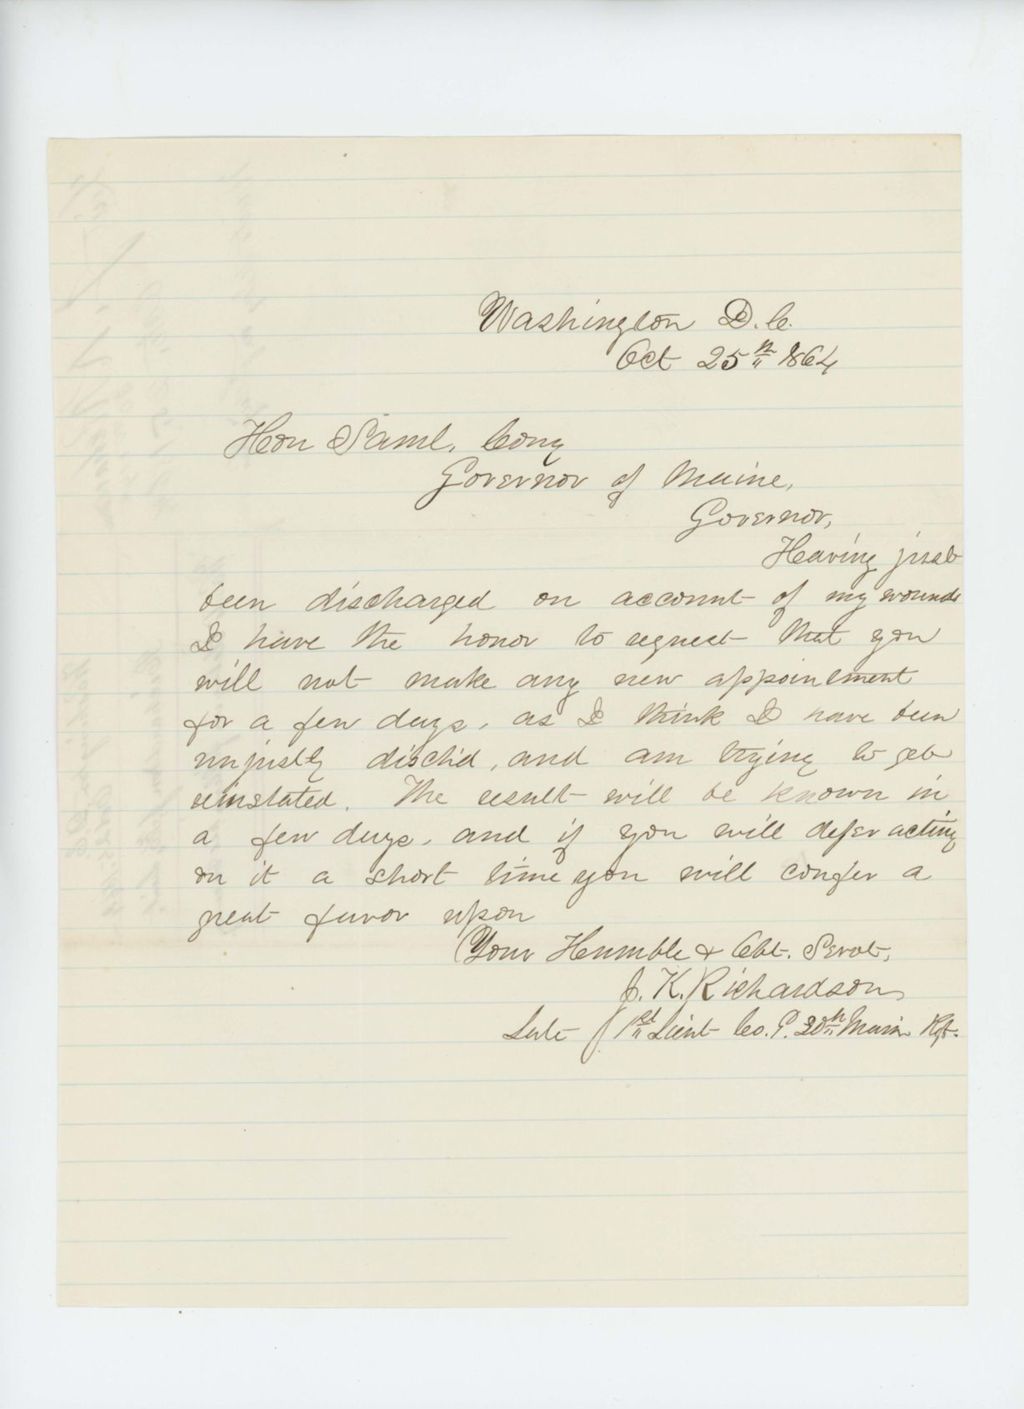 Washington D.C.
Oct 25th 1864
Hon Saml. Cony
Governor of Maine,
Governor,
Having just
been discharged on account of my wounds
I have the honor to request that you
will not make any new appointment
for a few days, as I think I have been
unjustly disch'd, and am trying to get
reinstated. The result will be known in
a few days, and if you will defer acting
on it a short time you will confer a
great favor upon
Your Humble & Obt. Servt,
J. K. Richardson
Late 1st Lieut Co. 20th Maine Rgt.